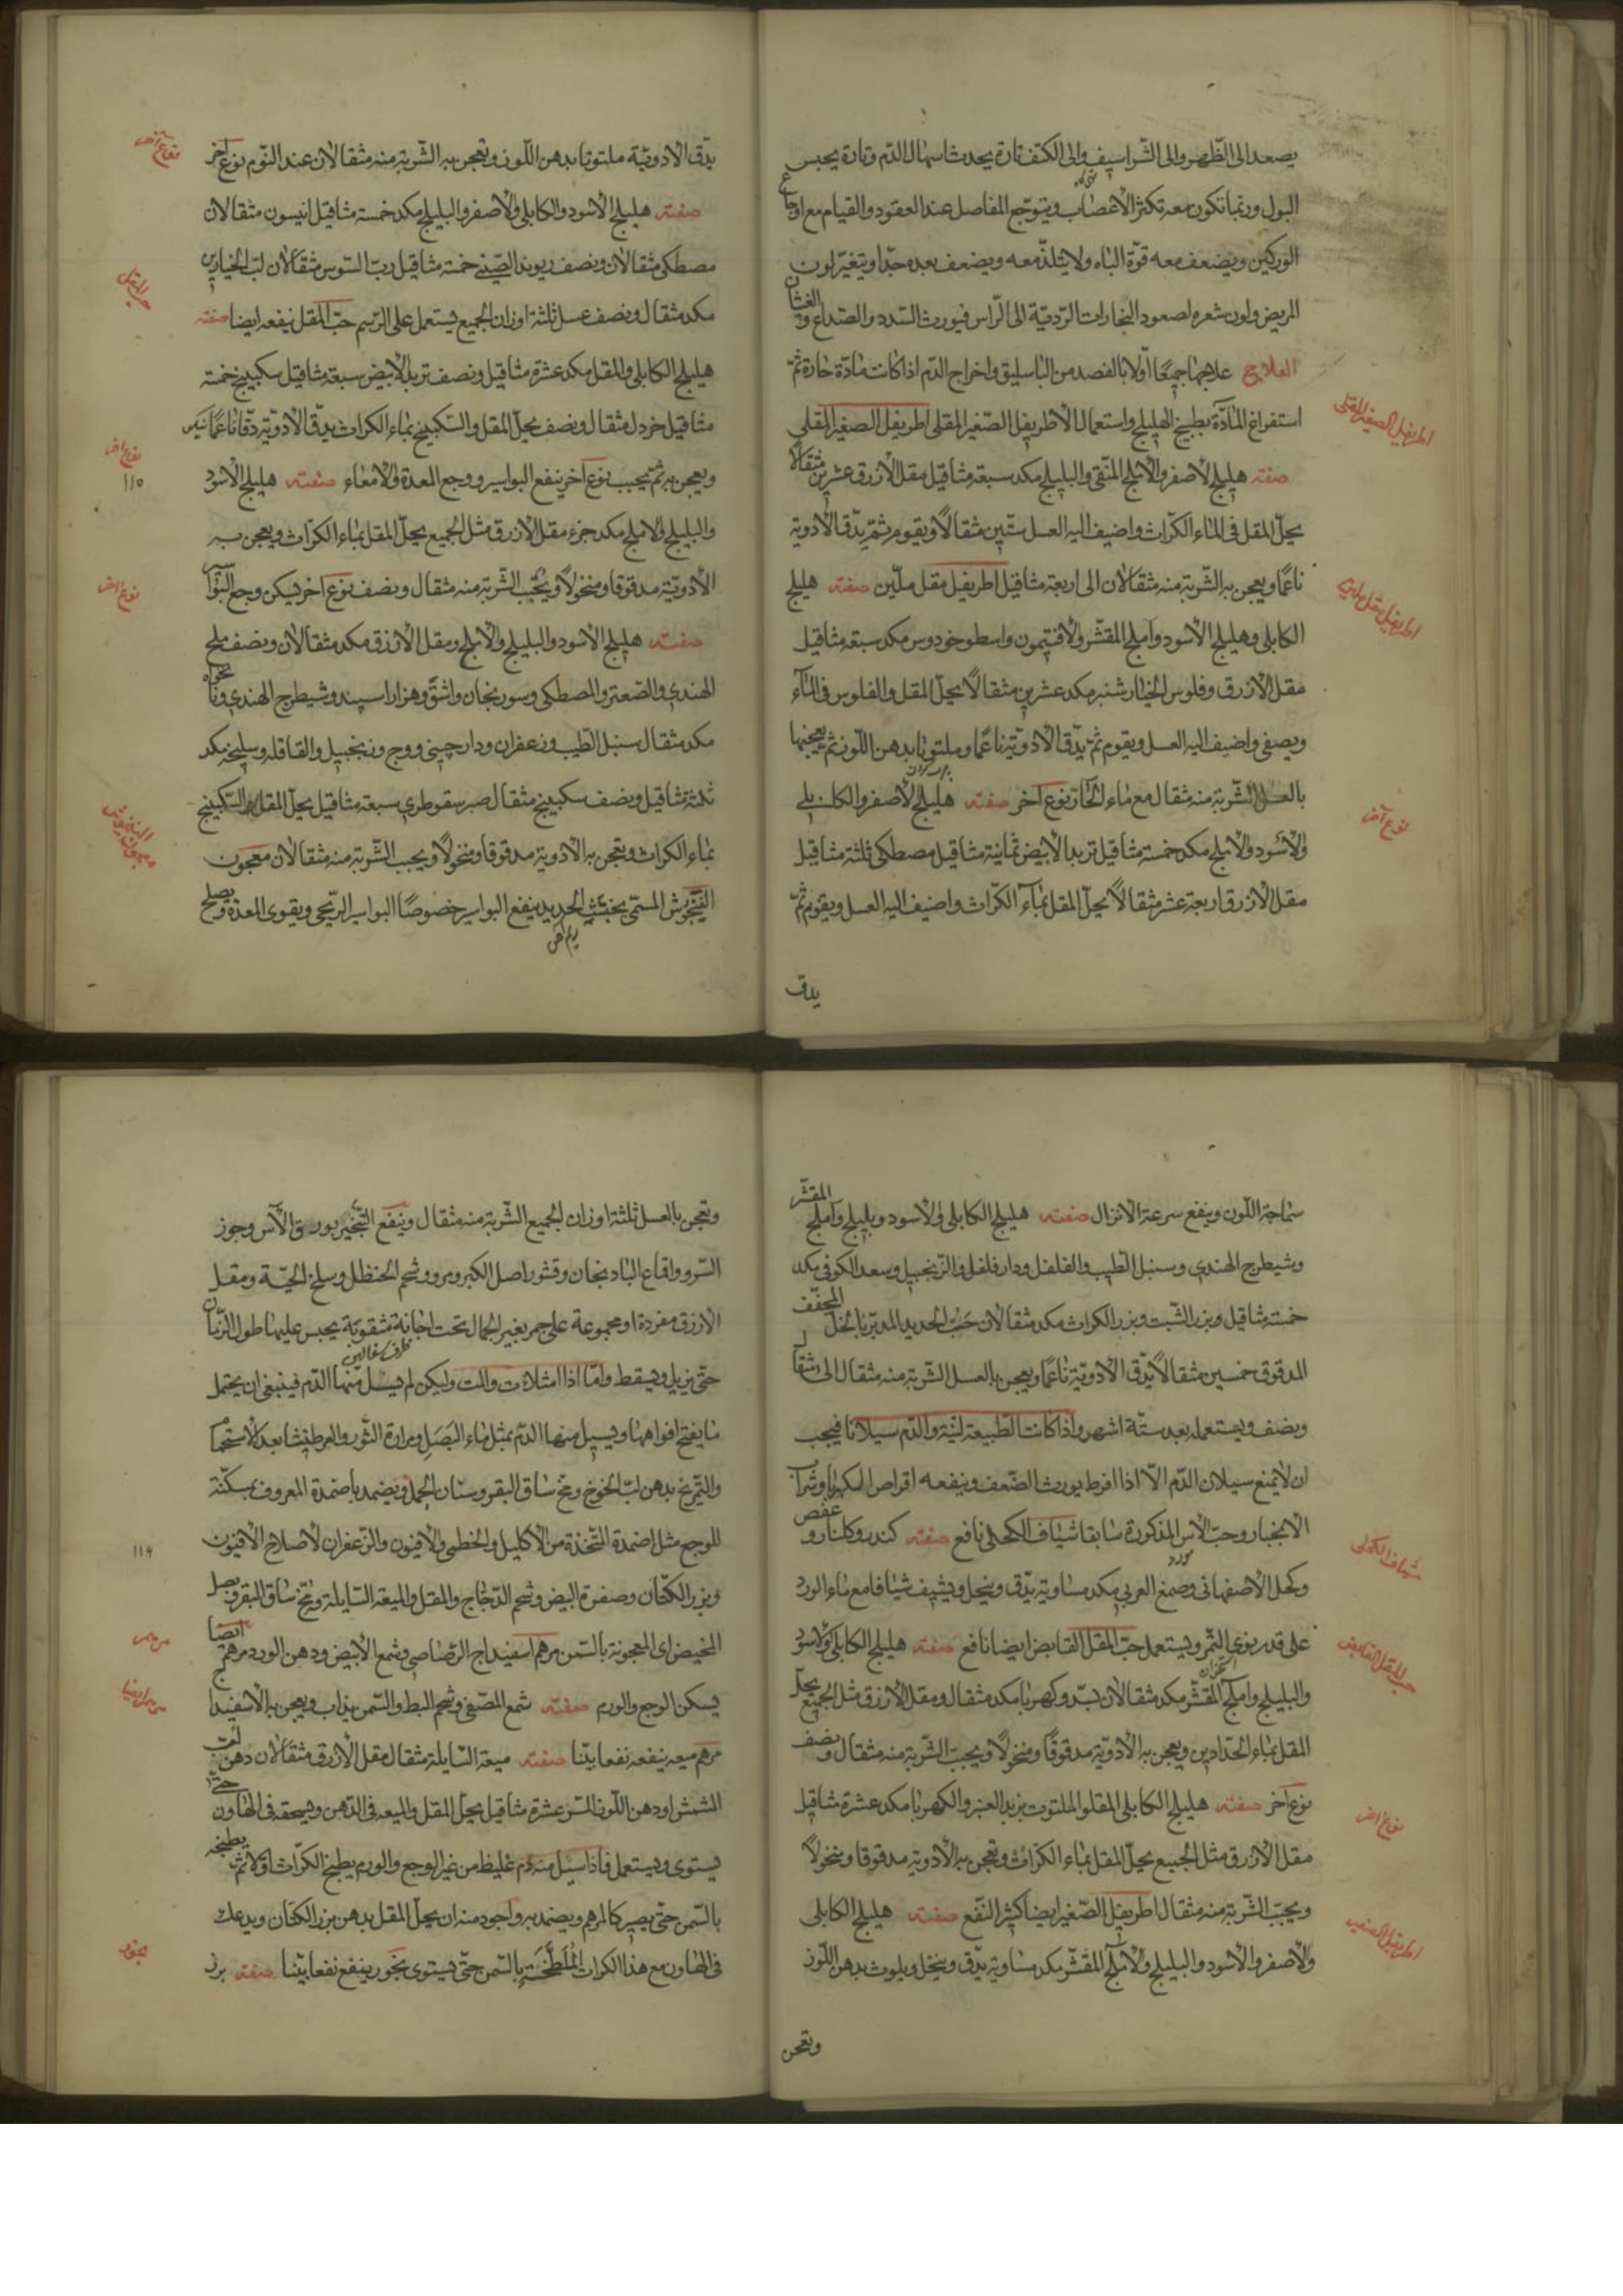 يصعد الى الظهر والى الشراسيف والى الكتف تارة يحدث اسهال الدم وتارة يحبس
البول وربما تكون معه تكثر الاعضاب ويتوجع المفاصل عند العقود والقيام مع اوجاع
الوركين ويضعف معه قوّة الباه ولا يتلذّ معه ويضعف بعده جدّا ويتغيّر لون
المريض ولون شعره لصعود البخارات الرّديّة الى الرّاس فيورث السّدد والصّداع و الغشان
العلاج علاجهما جميعًا اوّلا بالفصد من الباسليق واخراج الدّم اذا كانت مادّة حادة ثمّ
استفراغ المادّة بطبيخ الهليلج واستعمال الاطريفل الصّغير المقلى اطريفل الصغير المقلى
صفته هليلج الاصفر والاملج المنقى والبليلج مكد سبعة مثاقيل مقل الازرق عشرين مثقالا
يحلّ المقل فى الماء الكرّاث واضيف اليه العسل ستّين مثقالًا ويقوم ثمّ يدّق الادوية
ناعمًا ويعجن به الشّربة منه مثقالان الى اربعة مثاقيل اطريفل مقل ملّين صفته هليلج
الكابلى وهليلج الاسود وآملج المقشّر والافتيمون واسطوخودوس مكد سبعة مثاقيل
مقل الازرق وفلوس الخيارشنبر مكد عشرين مثقالًا يحلّ المقل والفلوس فى المآء
ويصفى واضيف اليه العسل ويقوم ثمّ يدّق الادويّة ناعمًا وملتوتا بدهن اللّوز ثمّ يعجنها
بالعسل الشّربة منه مثقال مع ماء الحارّ نوع آخر صفته هليلج الاصفر والكابلى
والاسود والاملج مكد خمسة مثاقيل تربد الابيض ثمانية مثاقيل مصطكى ثلثة مثاقيل
مقل الازرق اربعة عشر مثقالًا يحلّ المقل بمآء الكرّاث واضيف اليه العسل ويقوم ثمّ
يدق
اطريفل الصغير المقلى
اطريفل مقل ملين
نوع آخر
يدّق الادويّة ملتوتا بدهن اللّوز وتعجن به الشّربة منه مثقالان عند النّوم نوع آخر
صفته هليلج الاسود والكابلى والاصفر والبليلج مكد خمسة مثاقيل انيسون مثقالان
مصطكى مثقالان ونصف ريوند الصّينى خمسة مثاقيل ربّ السّوس مثقالان لبّ الخيارين
مكد مثقال ونصف عسل ثلثة اوزان الجميع يستعمل على الرّسم حبّ المقل نيفعه ايضا صفته
هليلج الكابلى والمقل مكد عشرة مثاقيل ونصف تربد الابيض سبعة مثاقيل سكبينج خمسة
مثاقيل خردل مثقال ونصف يحلّ المقل والسّكبينج بماء الكراث يدقّ الادويّة دقّا ناعمًا
ويعجن به ثمّ يحبب نوع آخر ينفع البواسير ووجع المعدة والامعاء صفته هليلج الاسود
والبليلج والاملج مكد جزء مقل الازرق مثل الجميع يحلّ المقل بماء الكرّاث ويعجن به
الادويّة مدقوقا ومنخولًا ويحبّب الشّربة منه مثقال ونصف نوع آخر يسكن وجع البواسير
صفته هليلج الاسود والبليلج والاملج ومقل الازرق مكد مثقالان ونصف ملح
الهندى والصّعتر والمصطكى وسورنجان واشقّ وهزار اسپند وشيطرج الهندى ونانخواه
مكد مثقال سنبل الطيب وزعفران ودارچينى ووج وزنجبيل والقاقله وسليخه مكد
ثلثة مثاقيل ونصف سكبينج مثقال صبر سقوطرى سبعة مثاقيل يحلّ المقل والسّكبينج
بماء الكراث وتعجن به الادوية مدقوقا ومنخولًا ويحبب الشّربة منه مثقالان معجون
الفنجنوش المسمّى بخبث الحديد ينفع البواسير خصوصًا البواسير الرّيحى ويقوى المعدة ويصلح
ريم آهن
نوع آخر
حب المقل
نوع آخر
١١٥
نوع آخر
معجون الفنجنوش
سماجة اللّون وينفع سرعة الانزال صفته هليلج الكابلى والاسود وبليلج وآملج المقشّر
وشيطرج الهندى وسنبل الطيب والفلفل ودارفلفل والزّنجبيل وسعد الكوفى مكد
خمسة مثاقيل وبزر الشّبت وبزر الكراث مكد مثقالان خبث الحديد المدبّر بالخلّ المجفّف
المدقوق خمسين مثقالًا يدّق الادويّة ناعمًا ويعجن بالعسل الشّربة منه مثقال الى مثقال
ونصف ويستعمله بعد ستّة اشهر واذا كانت الطّبيعة ليّنة والدّم سيلانا فيجب
ان لا يمنع سيلان الدّم الّا اذا افرط يورث الضّعف وينفعه اقراص الكهربا وشراب
الانجبار وحبّ الاس المذكورة سابقا شياف الكحلى نافع صفته كندر وكلنار و عفص
وكحل الاصفهانى وصمغ العربى مكد مساوية يدّق وينخل ويشيف شيافا مع ماء الورد
على قدر نوى التّمر ويستعمل حبّ المقل القابض ايضا نافع صفته هليلج الكابلى والاسود
والبليلج وآملج المقشّر مكد مثقالان بسّد وكهربا مكد مثقال ومقل الازرق مثل الجميع يحلّ
المقل بماء الحدّادين ويعجن به الادويّة مدقوقًا ومنخولًا ويحبّب الشّربة منه مثقال ونصف
نوع آخر صفته هليلج الكابلى المقلو الملتوت بزبد العنبر والكهربا مكد عشرة مثاقيل
مقل الازرق مثل الجميع يحلّ المقل بماء الكرّاث وتعجن به الادوية مدقوقا ومنخولًا
ويحبّب الشّربة منه مثقال اطريفل الصّغير ايضا كثير النّفع صفته هليلج الكابلى
والاصفر والاسود والبليلج والآملج المقشّر مكد مساوية يدّق وينخل ويلوث بدهن اللّوز
وتعجن
شياف الكحلى
حب المقل القابض
نوع آخر
اطريفل الصغير
وتعجن بالعسل ثلثة اوزان الجميع الشّربة منه مثقال وينفع التّبخير بورق الآس وجوز
السّرو واقماع البادنجان وقشور اصل الكبر ومرو وشحم الحنظل وسلخ الحيّة ومقل
الازرق مفردة او مجموعة على جمر بغير الجمال تحت اجانة مثقوبة يجبس عليها طول الزّمان
حتّى يزيل ويسقط وامّا اذا امتلات والمت ولكن لم يسل منها الدّم فينبغى ان يحتمل
ما يفتح افواهها ويسيل منها الدّم بمثل ماء البصل ومرارة الثّور والعرطنيثا بعد الاستحمام
والتّمريخ بدهن لبّ الخوخ ومخ ساق البقر وسنان الجمل ويضمد باضمدة المعروف بسكّنة
للوجع مثل اضمدة المتّخذة من الاكليل والخطمى والافيون والزّعفران لاصلاح الافيون
وبزر الكتّان وصفرة البيض وشحم الدّجاج والمقل والميعة السّايلة ومخ ساق البقر وبصل
المخيض اى المعجونة بالسّمن مرهم اسفيداج الرّصاصى وشمع الابيض ودهن الورد مرهم ايضا
يسكن الوجع والورم صفته شمع المصّفى وشحم البط والسّمن يذاب ويعجن به الاسفيداج
مرهم ميعه ينفعه نفعا بيّنا صفته ميعة السّايلة مثقال مقل الازرق مثقالان دهن لبّ
المشمش او دهن اللّوز المرّ عشرة مثاقيل يحلّ المقل والميعه فى الدّهن ويسحقه فى الهاون حتّى
يستوى ويستعمل فاذا سيل منه دم غليظ من غير الوجع والورم يطبخ الكرّاث اوّلا ثمّ يطبخه
بالسّمن حتّى يصير كالمرهم ويضمد به واجود منه ان يحلّ المقل بدهن بزر الكتّان ويدعك
فى الهاون مع هذا الكراث المُلَطَّخَةِ بالسّمن حتّى يستوى بخور ينفع نفعا بيّنا صفته بزر
١١٦
مرهم
مرهم ايضا
بخور